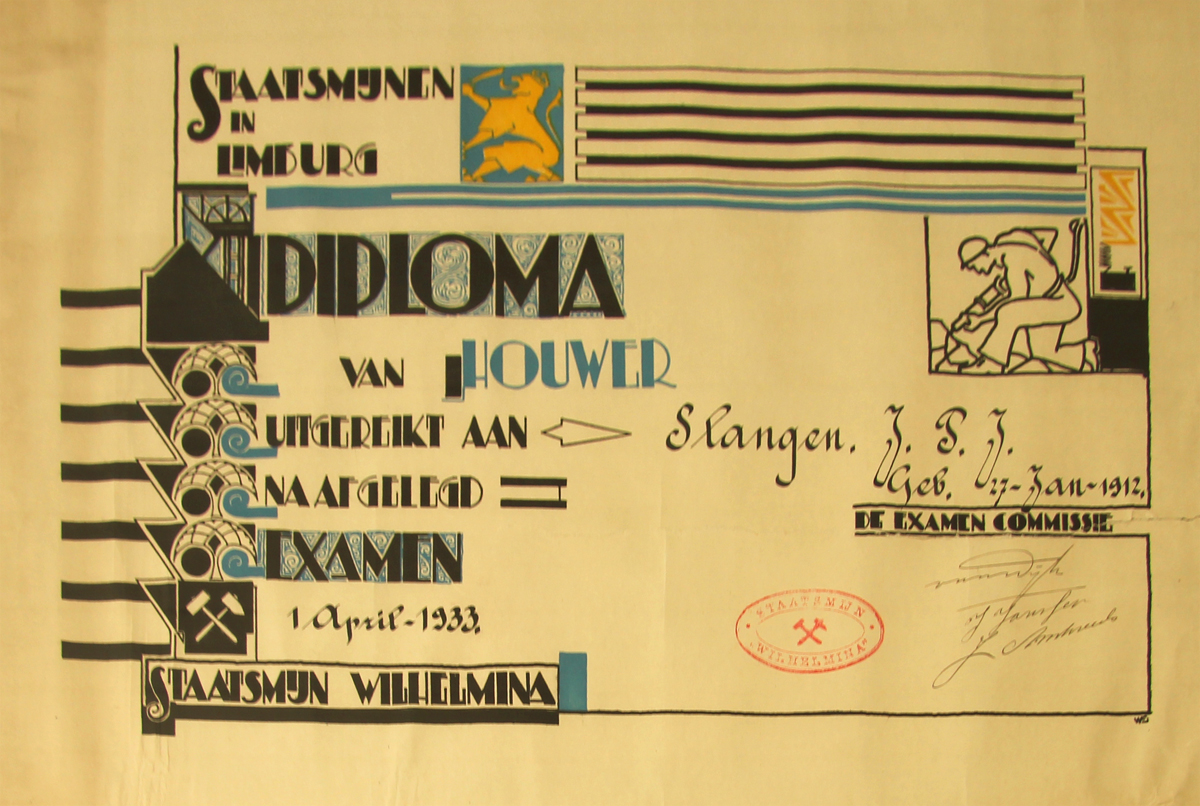 STAATSMIJNEN
IN
LIMBURG
DIPLOMA
VAN HOUWER
UITGEREIKT AAN Slangen. J. P. J.
Geb. 27-Jan-1912.
NA AFGELEGD
EXAMEN
1 April-1933.
DE EXAMEN COMMISSIE
STAATSMIJN
WILHELMINA
STAATSMIJN WILHELMINA